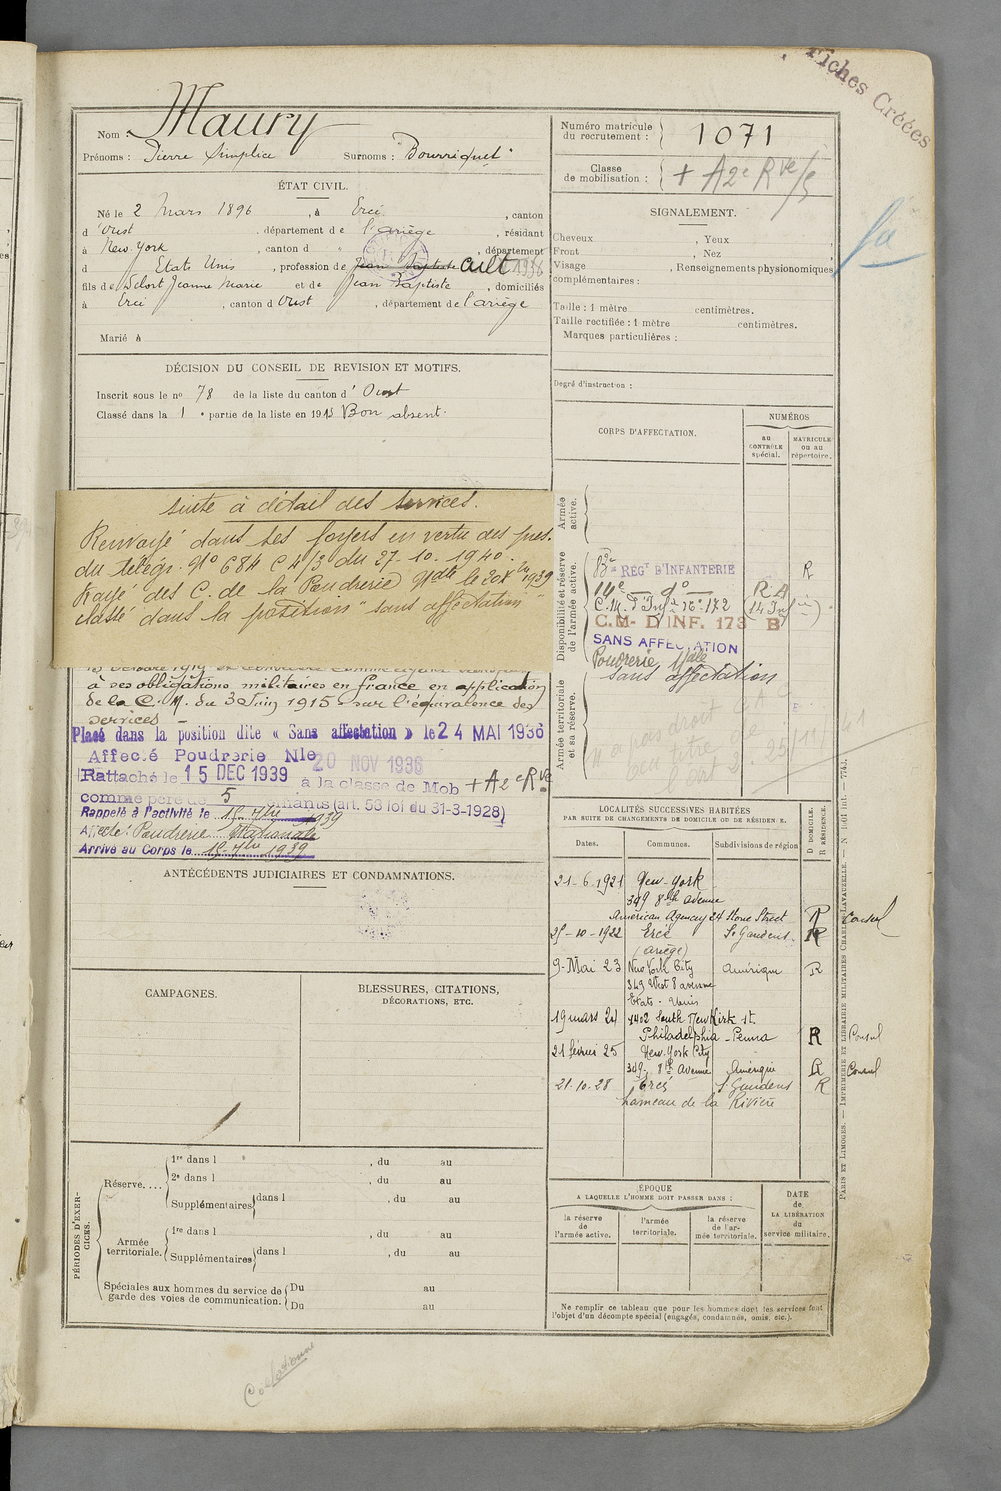 Fiches Créées
Nom : Maury
Prénoms : Pierre Simplice Surnoms : "Bourriquet"
Numéro matricule du recrutement : 1071
Classe de mobilisation : + A2e Rve/5
ÉTAT CIVIL.
Né le 2 Mars 1896, à Ercé, canton
d'Oust, département de l'ariège, résidant
à New-York, canton d " , département
d Etats Unis, profession de Jean Baptiste cult 1936
fils de Delort Jeanne Marie et de Jean Baptiste, domiciliés
à Ercé, canton d'Oust, département de l'ariège
Marié à
SIGNALEMENT.
Cheveux , Yeux
Front , Nez
Visage , Renseignements physionomiques
complémentaires :
Taille : 1 mètre centimètres.
Taille rectifiée : 1 mètre centimètres.
Marques particulières :
Degré d'instruction :
DÉCISION DU CONSEIL DE REVISION ET MOTIFS.
Inscrit sous le no 78 de la liste du canton d'Oust
Classé dans la 1e partie de la liste en 1915 Bon absent.
suite à détail des services.
Renvoyé dans ses foyers en vertu des pres.
du télégr. No 684 C 4/3 du 27-10-1940.
Rayé des C. de la Poudrerie Nale le 20 Xbre 1939
classé dans la position "sans affectation"
à ses obligations militaires en france en application
de la C. M. du 3 Juin 1915 sur l'équivalence des
services -
Placé dans la position dite « Sans affectation » le 24 MAI 1936
Affecté Poudrerie Nle 20 NOV 1936
Rattaché le 15 DEC 1939 à la classe de Mob + A2e Rve
comme père de 5 enfants (art. 58 loi du 31-3-1928)
Rappelé à l'activité le 15 7bre 1939
Affecté : Poudrerie Nationale
Arrivé au Corps le 15 7bre 1939
CORPS D'AFFECTATION.
NUMÉROS
AU CONTRÔLE spécial.
MATRICULE ou au répertoire.
Armée active.
Disponibilité et réserve de l'armée active.
RÉGt D'INFANTERIE R
14e do RA
C.M. d'Infie No 172 (14 Inf ie)
C.M. D'INF. 173 B
SANS AFFECTATION
Poudrerie Nale
sans affectation
Armée territoriale et sa réserve.
N'a pas droit C A C
au titre de
l'art 2. 25/11/41
LOCALITÉS SUCCESSIVES HABITÉES
PAR SUITE DE CHANGEMENTS DE DOMICILE OU DE RÉSIDENCE.
Dates. Communes. Subdivisions de région
D. DOMICILE. R. RÉSIDENCE.
21-6-1921 New-York
349 8th avenue
American Agency 24 Stone Street R Consul
25-10-1922 Ercé St Gaudens R
(ariège)
9-Mai 23 New York City Amérique R
349 West 8 avenue
Etats-Unis
19 mars 24 1402 South Newkirk st.
Philadelphia - Penna R Consul
21 février 25 New-York City
349, 8th Avenue Amérique R Consul
21-10-28 Ercé St Gaudens R
hameau de la Rivière
ANTÉCÉDENTS JUDICIAIRES ET CONDAMNATIONS.
CAMPAGNES.
BLESSURES, CITATIONS,
DÉCORATIONS, ETC.
PÉRIODES D'EXERCICES.
Réserve....
1re dans l , du au
2e dans l , du au
Supplémentaires dans l , du au
Armée territoriale.
1re dans l , du au
Supplémentaires dans l , du au
Spéciales aux hommes du service de garde des voies de communication.
Du au
Du au
ÉPOQUE
A LAQUELLE L'HOMME DOIT PASSER DANS :
la réserve de l'armée active.
l'armée territoriale.
la réserve de l'armée territoriale.
DATE de LA LIBÉRATION du service militaire.
Ne remplir ce tableau que pour les hommes dont les services font
l'objet d'un décompte spécial (engagés, condamnés, omis, etc.).
PARIS ET LIMOGES. — IMPRIMERIE ET LIBRAIRIE MILITAIRES CHARLES-LAVAUZELLE. —
Collationné